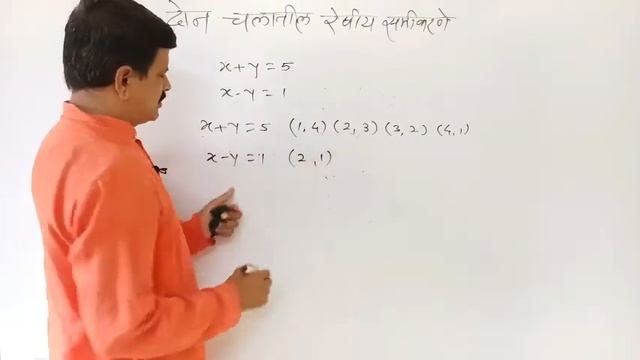 दोन चलातील रेषीय समीकरणे
x+y=5
x-y=1
x+y=5 (1,4) (2,3) (3,2) (4,1)
x-y=1 (2,1)